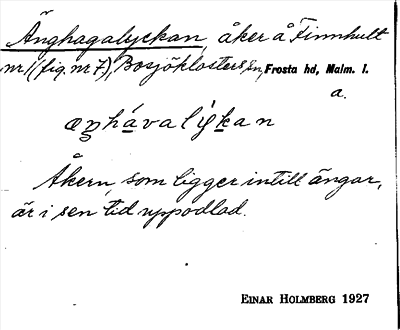 Änghagalyckan, åker å Finnhult
nr 1 (fig. nr 7), Bosjöklosters sn, Frosta hd, Malm. l.
a.
Åkern, som ligger intill ängar,
är i sen tid uppodlad.
EINAR HOLMBERG 1927